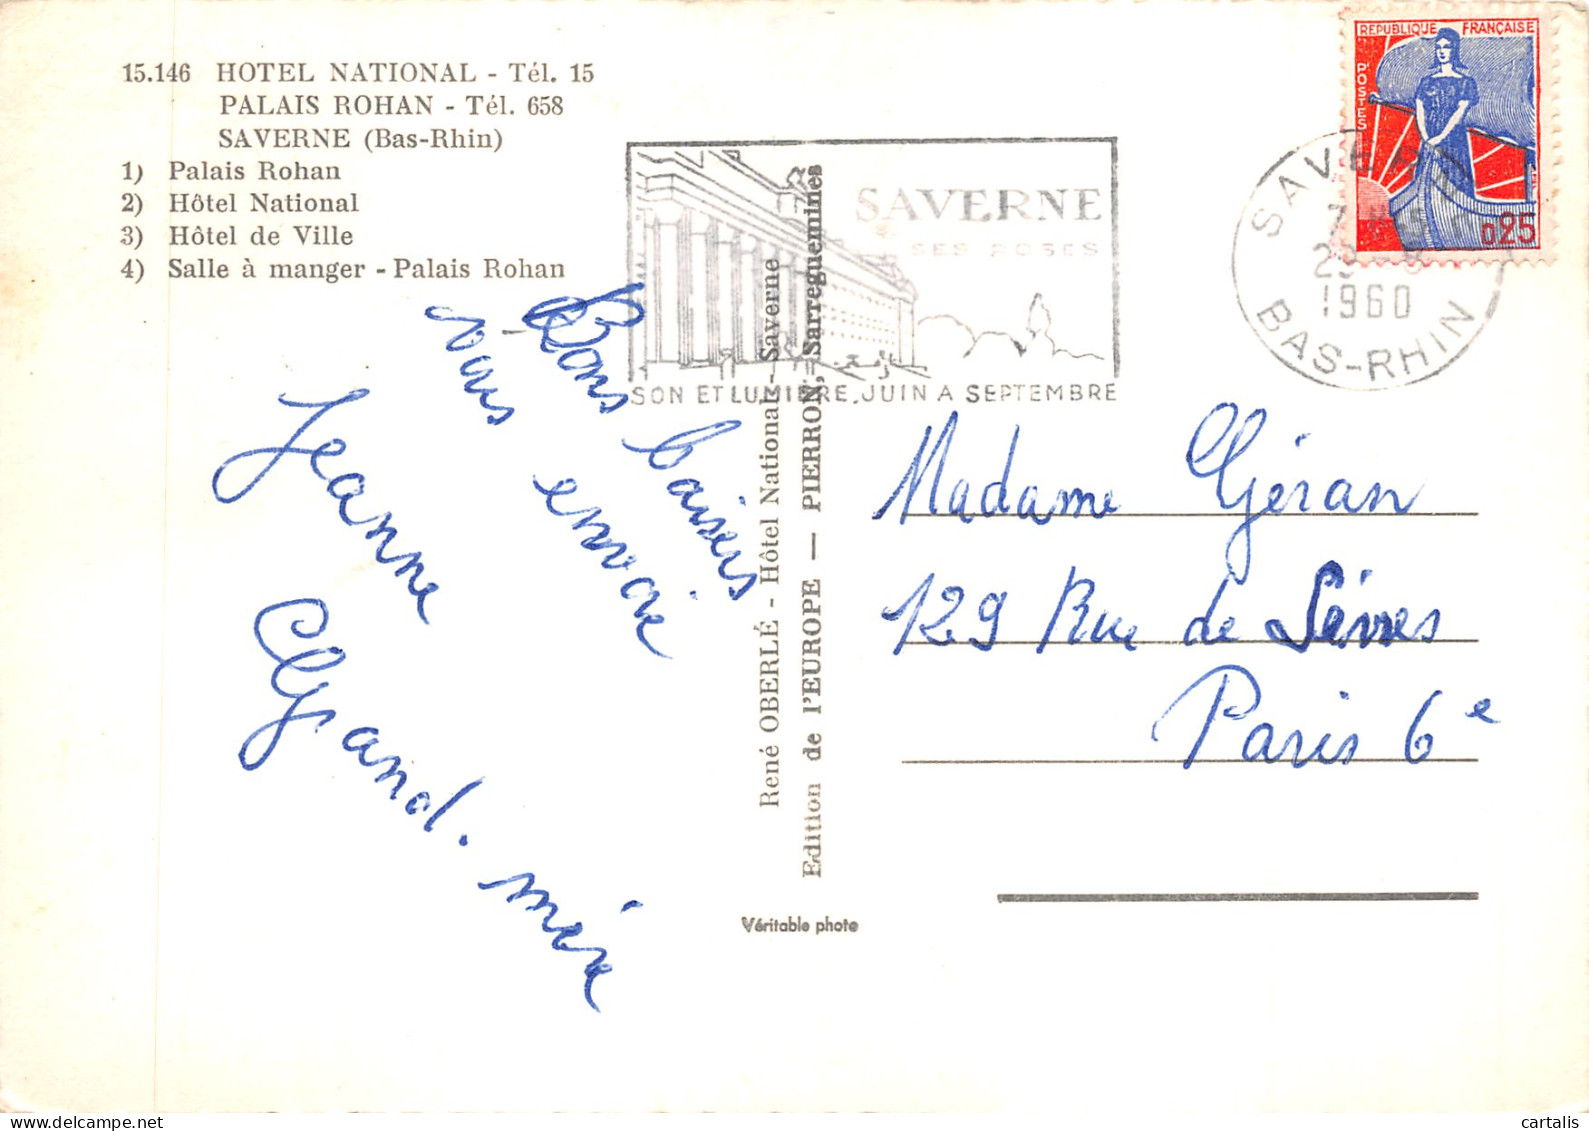 15.146 HOTEL NATIONAL - Tél. 15
PALAIS ROHAN - Tél. 658
SAVERNE (Bas-Rhin)
1) Palais Rohan
2) Hôtel National
3) Hôtel de Ville
4) Salle à manger - Palais Rohan
Bons baisers
vous envoie
Jeanne
Grand. mère
René OBERLÉ - Hôtel National - Saverne
Edition de l'EUROPE — PIERRON, Sarreguemines
Véritable photo
SAVERNE
SES ROSES
SON ET LUMIERE. JUIN A SEPTEMBRE
REPUBLIQUE FRANÇAISE
POSTES
0,25
SAVERNE
1960
BAS-RHIN
Madame Géran
129 Rue de Sèvres
Paris 6e
cartalis
delcampe.net